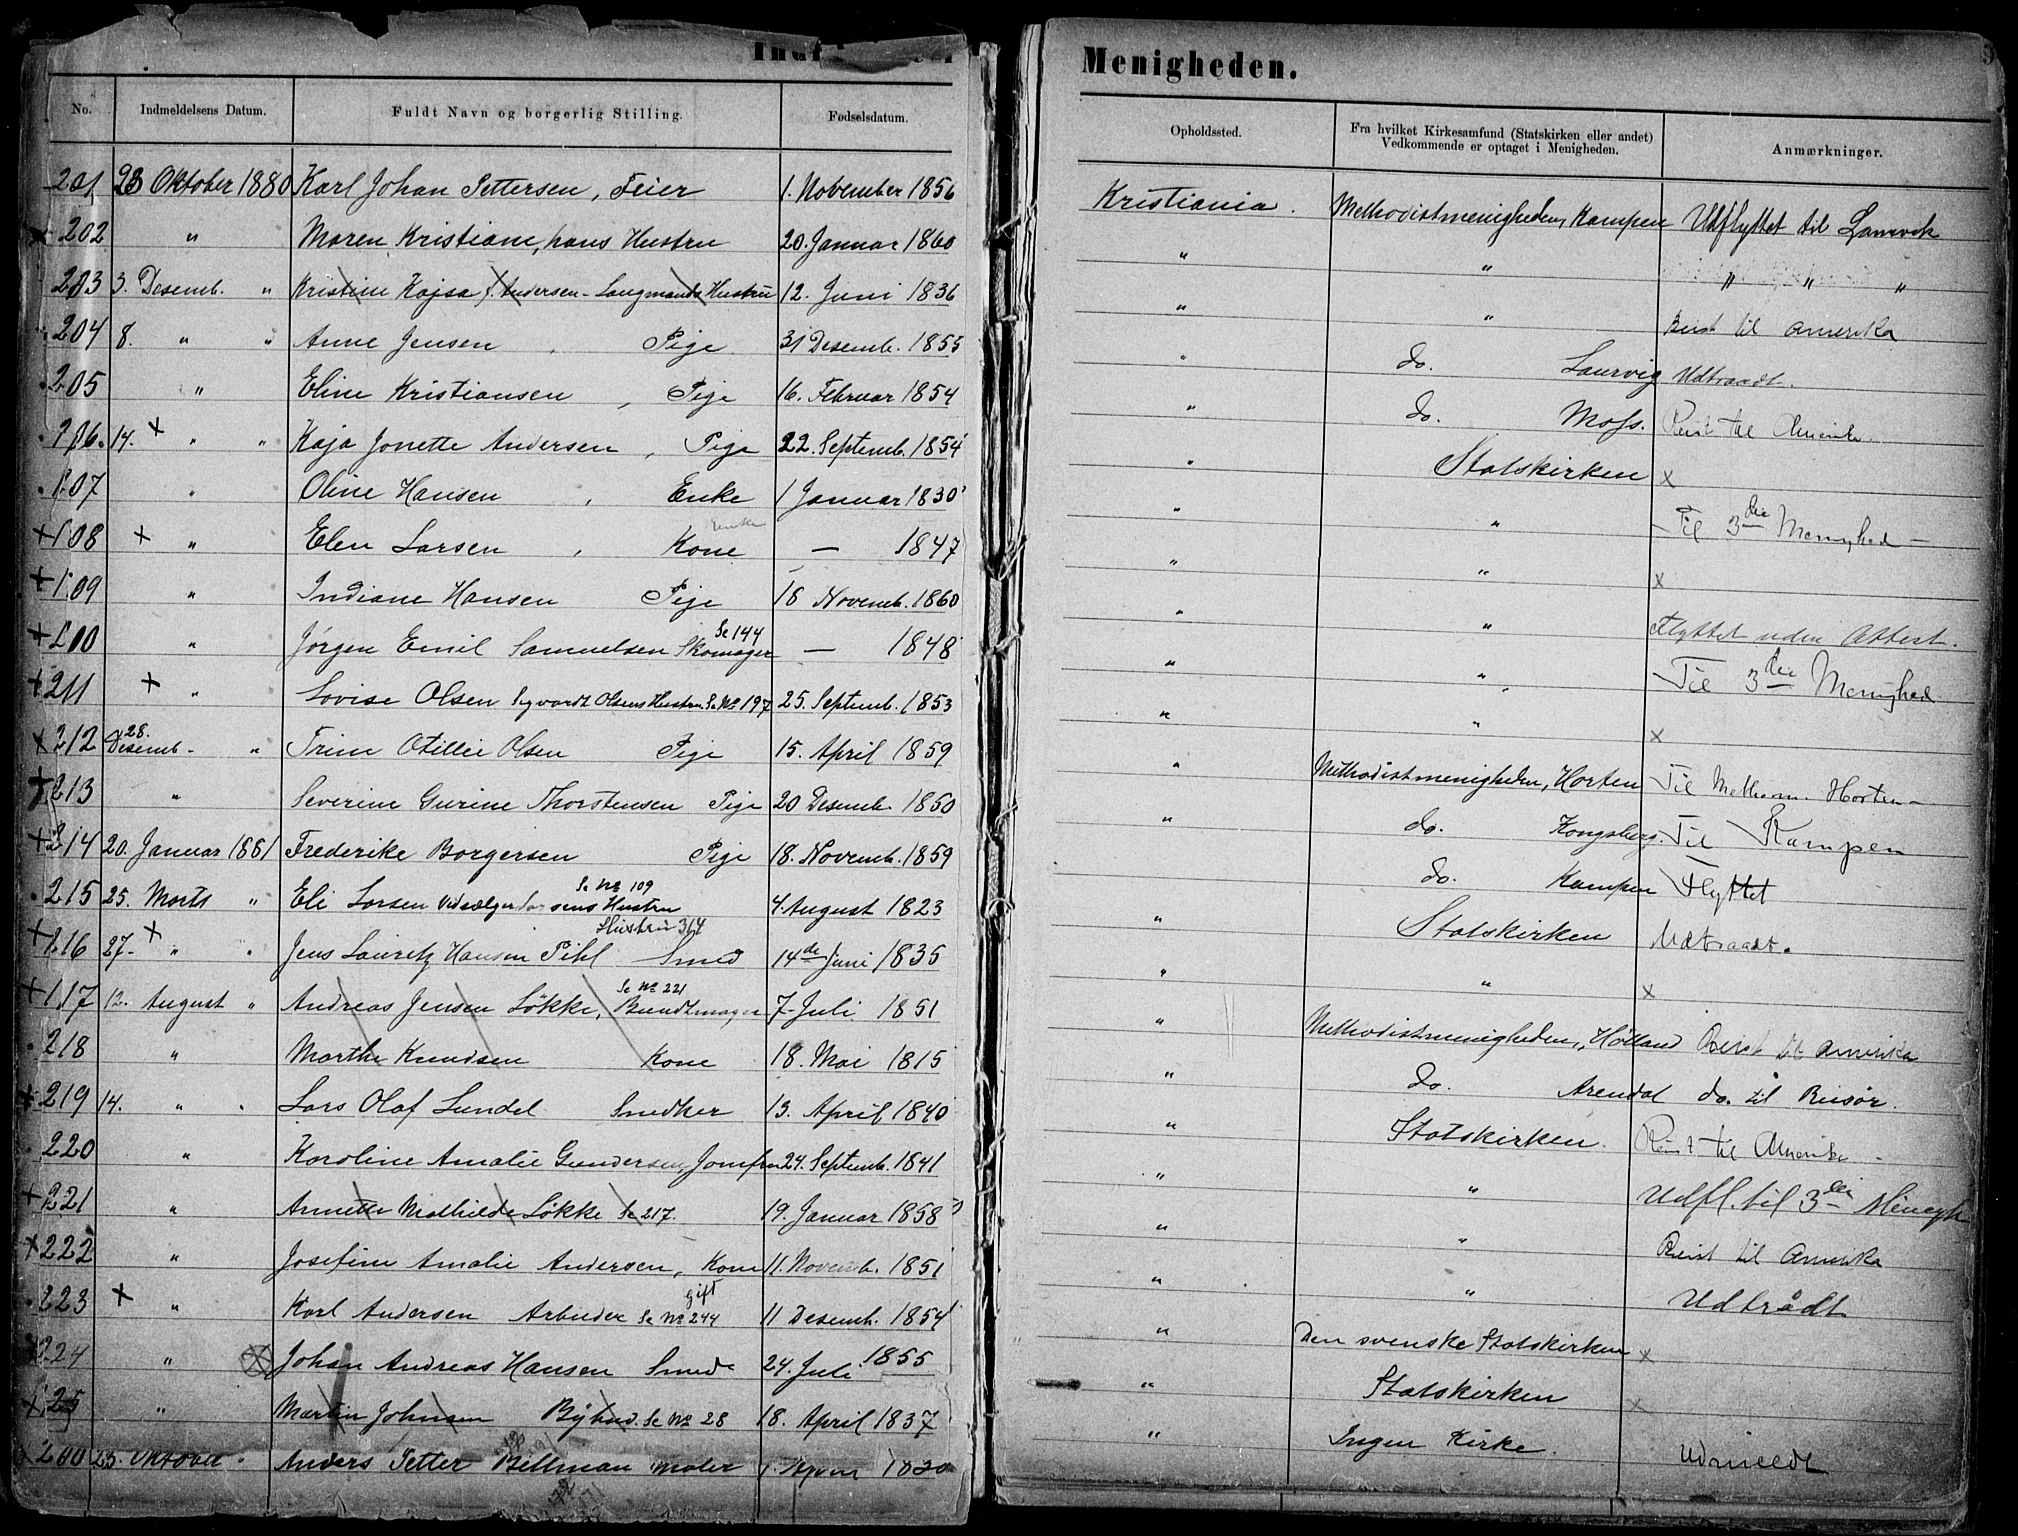 Menigheden.
No. Indmeldelsens Datum. Fuldt Navn og borgerlig Stilling. Fødselsdatum.
201 23 Oktober 1880 Karl Johan Pettersen, Feier 1. November 1856
202 " Maren Kristiane, hans Hustru 20. Januar 1860
203 3. Desemb. " Kristine Kajsa f. Andersen - Langmands Hustru 12. Juni 1836
204 8. " " Anne Jensen, Pige 31 Desemb. 1855
205 " Eline Kristiansen, Pige 16. Februar 1854
206. 14. + " " Kaja Jonette Andersen, Pige 22. Septemb. 1854
207 " Oline Hansen, Enke 1 Januar 1830
+ 208 + " Elen Larsen, Kone Enke — 1847
+ 209 " Indiane Hansen Pige 18 Novemb. 1860
+ 210 " Jørgen Emil Samuelsen Skomager Se 144 — 1848
+ 211 + " Lovise Olsen Sigvardt Olsens Hustru. Se No 197 25. Septemb. 1853
x 212 28. Desemb. " Trine Otillie Olsen Pige 15. April 1859
+ 213 " Severine Gurine Thorstensen Pige 20 Desemb. 1850
+ 214 20. Januar 1881 Frederike Borgersen Pige 18. Novemb. 1859
215 25. Marts " Eli Larsen Vedsælger Larsens Hustru Se No 109 4. August 1823
+ 216 27. + " " Jens Lauretz Hansen Pihl Smed Hustru 364 14de Juni 1835
+ 217 12. August " Andreas Jensen Løkke, Bundtmager Se No 221 7. Juli 1851
218 " Marthe Knudsen Kone 18. Mai 1815
+ 219 14. " " Lars Olaf Lundel Snedker 13. April 1840
220 " Karoline Amalie Gundersen, Jomfru 24. Septemb. 1841
+ 221 " Annette Mathilde Løkke Se 217. 19. Januar 1858
+ 222 " Josefine Amalie Andersen, Kone 11. Novemb. 1851
223 + " Karl Andersen Arbeider Se No 244 gift 11 Desemb. 1854
224 " Johan Andreas Hansen Smed 24. Juli 1855
225 " Martin Johnsen Bybud. Se No 28 18. April 1837
200 23. Oktober " Anders Petter Bellman Maler 1. April
Opholdssted. Fra hvilket Kirkesamfund (Statskirken eller andet) Vedkommende er optaget i Menigheden. Anmærkninger.
Kristiania. Methodistmenigheden, Kampen Udflyttet til Laurvik
" " " " "
" " Reist til Amerika
" do. Laurvig Udtraadt.
" do. Moss. Reist til Amerika.
" Statskirken x
" " Til 3die Menighed —
" " x
" " Flyttet uden Attest.
" " Til 3die Menighed
" " x
" Methodistmenigheden, Horten Til Methom. Horten —
" do. Kongsberg. Til Kampen
do. Kampen Flyttet
" Statskirken Udtraadt.
" " x
" Methodistmenigheden, Høland Reist til Amerika
" do. Arendal do. til Risør.
" Statskirken. Reist til Amerika —
" " Udfl. til 3die Menigh
" " Reist til Amerika
" " Udtrådt
" Den svenske Statskirken x
" Statskirken x
" Ingen Kirke. Udmeldt